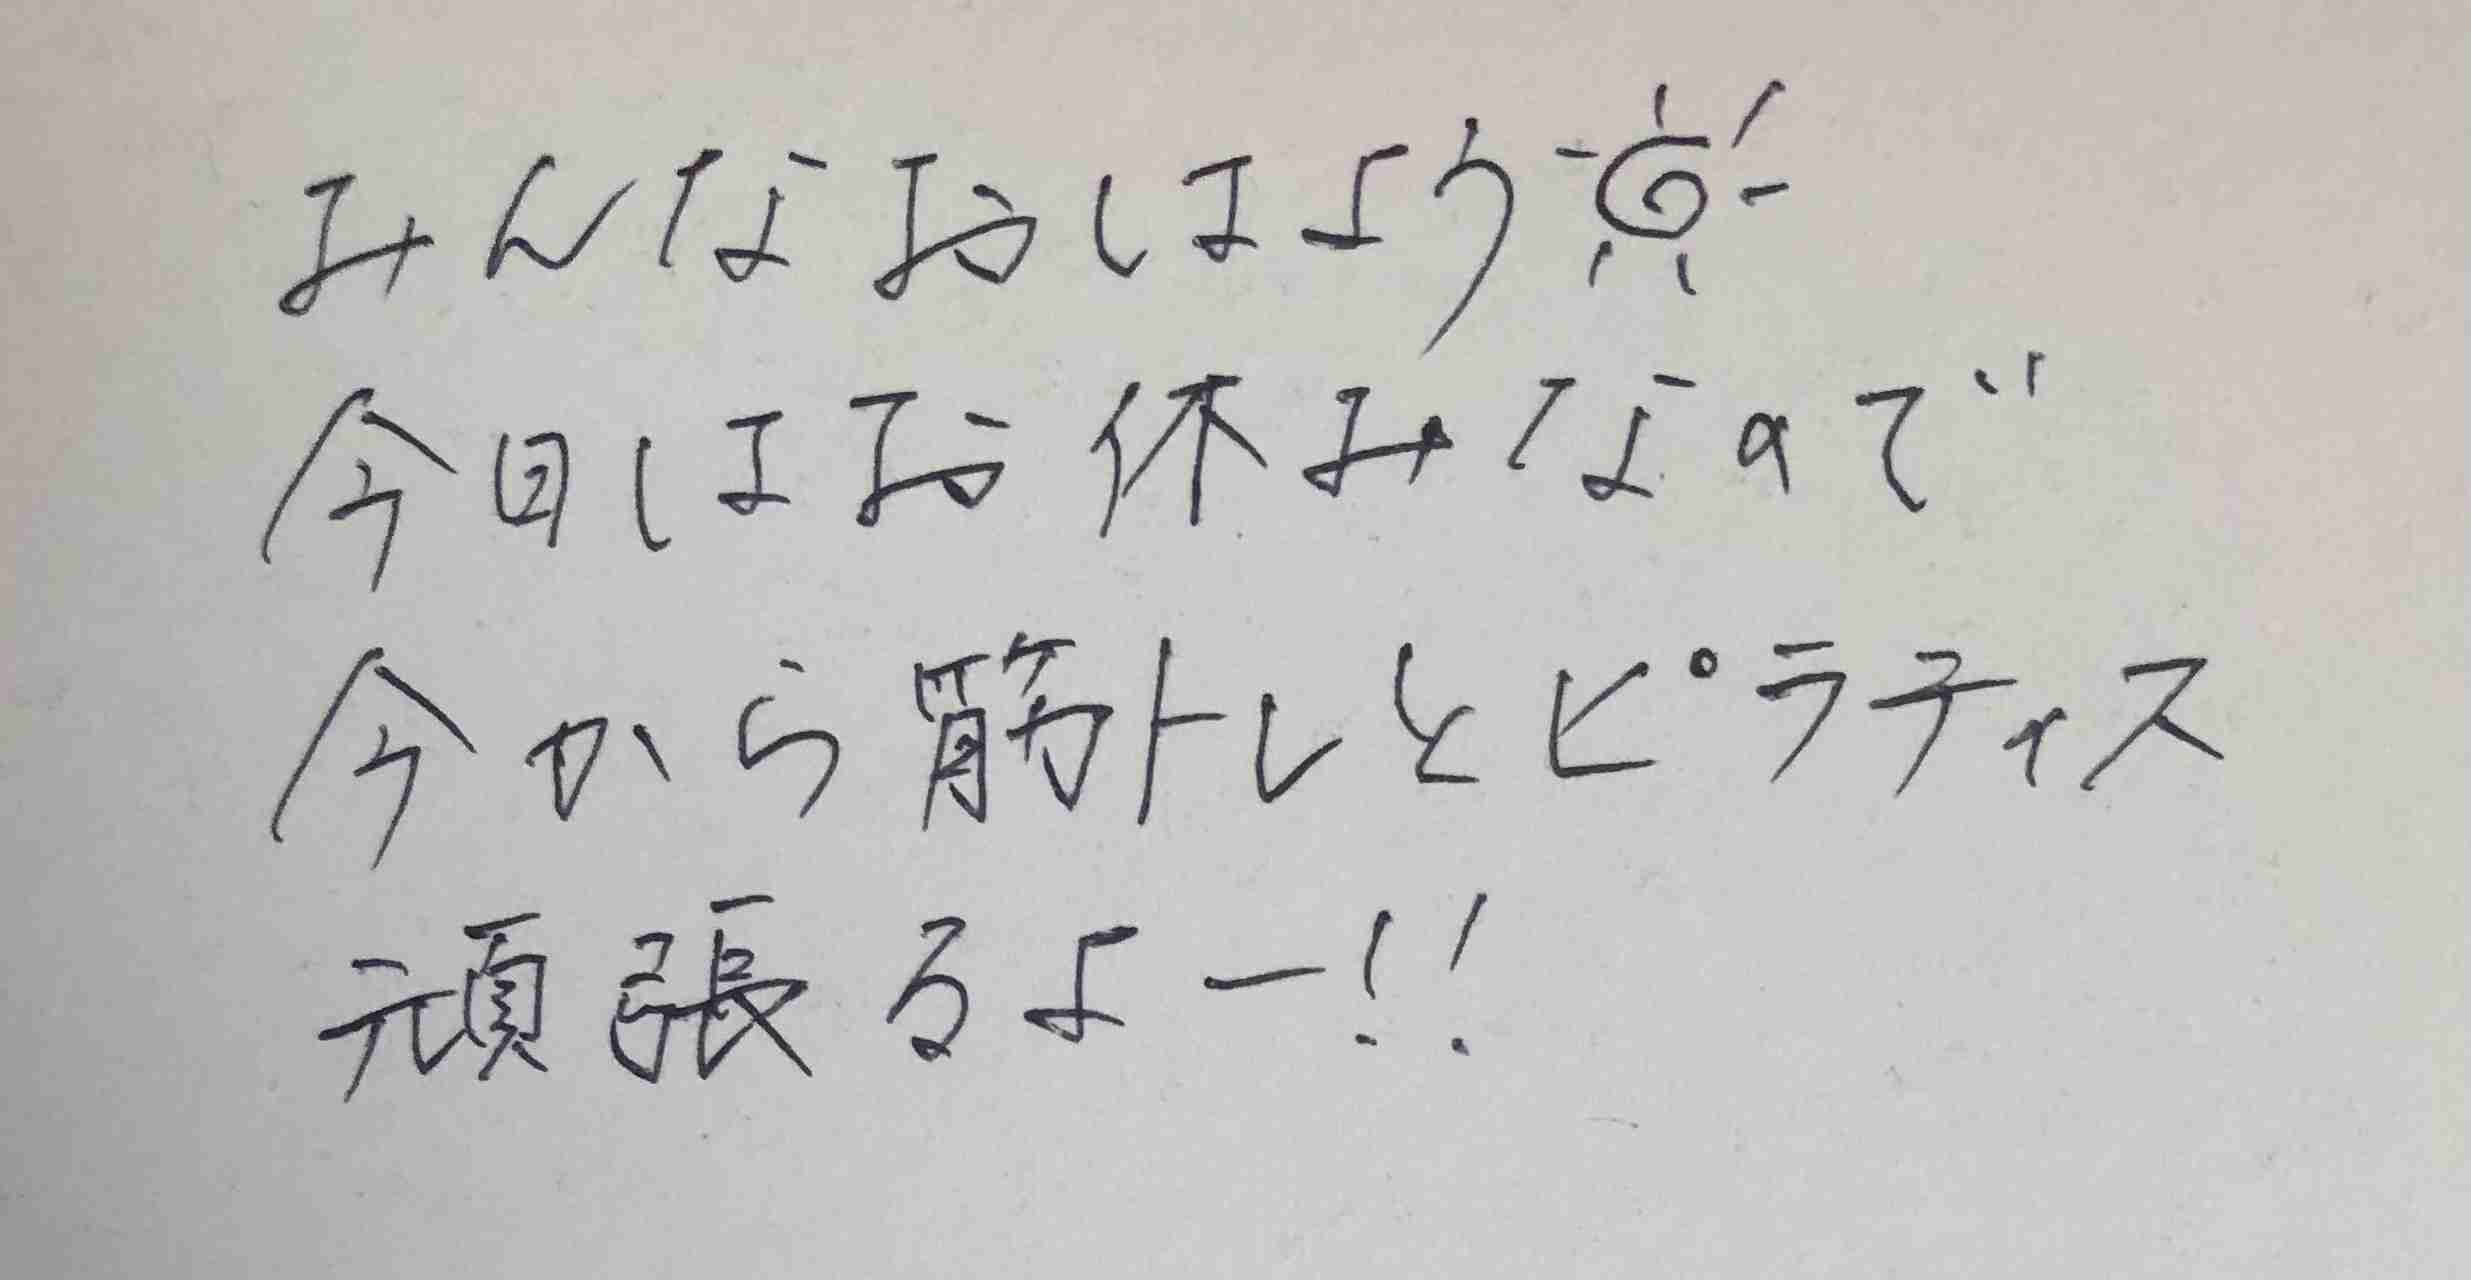 みんなおはよう☀
今日はお休みなので
今から筋トレとピラティス
頑張るよー!!